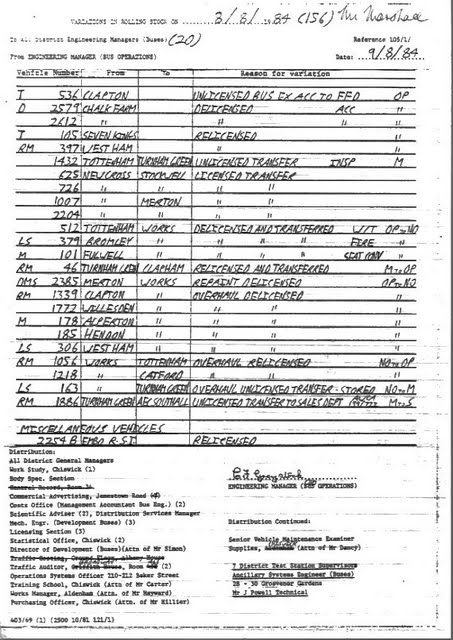 VARIATIONS IN ROLLING STOCK ON 8/8/1984 (156) Mr Marshall
To All District Engineering Managers (Buses) (20) Reference 105/1/
From ENGINEERING MANAGER (BUS OPERATIONS) Date: 9/8/84
Vehicle Number From To Reason for variation
T 536 CLAPTON UNLICENSED BUS EX ACC TO FFD OP
D 2579 CHALK FARM DELICENSED ACC "
2612 " " " "
T 105 SEVEN KINGS RELICENSED "
RM 397 WEST HAM " "
1432 TOTTENHAM TURNHAM GREEN UNLICENSED TRANSFER INSP M
625 NEW CROSS STOCKWELL LICENSED TRANSFER
726 " " " "
1007 " MERTON " "
2204 " " " "
512 TOTTENHAM WORKS DELICENSED AND TRANSFERRED W/T OP TO NO
LS 379 BROMLEY " " " " FIRE "
M 101 FULWELL " " " " SEAT CONV "
RM 46 TURNHAM GREEN CLAPHAM RELICENSED AND TRANSFERRED M TO OP
DMS 2385 MERTON WORKS REPAINT DELICENSED OP TO NO
RM 1339 CLAPTON " OVERHAUL DELICENSED "
1772 WILLESDEN " " " "
M 178 ALPERTON " " " "
185 HENDON " " " "
LS 306 WEST HAM " " " "
RM 1056 WORKS TOTTENHAM OVERHAUL RELICENSED NO TO OP
1218 " CATFORD " " "
LS 163 " TURNHAM GREEN OVERHAUL UNLICENSED TRANSFER - STORED NO TO M
RM 1886 TURNHAM GREEN AEC SOUTHALL UNLICENSED TRANSFER TO SALES DEPT M TO S
MISCELLANEOUS VEHICLES
2254 B EMBO R.S.D. RELICENSED
Distribution:
All District General Managers
Work Study, Chiswick (1)
Body Spec. Section
General Record, Room 34
ENGINEERING MANAGER (BUS OPERATIONS)
Commercial Advertising, Jamestown Road
Costs Office (Management Accountant Bus Eng.) (2)
Scientific Adviser (2), Distribution Services Manager
Mech. Engr. (Development Buses) (3)
Licensing Section (3)
Distribution Continued:
Statistical Office, Chiswick (2)
Senior Vehicle Maintenance Examiner
Director of Development (Buses)(Attn of Mr Simon)
Supplies, (Attn of Mr Dancy)
Traffic Costing, Ground Floor, Albany House
Traffic Auditor, Griffith House, Room (2)
7 District Test Station Supervisors
Operations Systems Officer 210-212 Baker Street
Ancillary Systems Engineer (Buses)
Training School, Chiswick (Attn of Mr Carter)
28 - 30 Grosvenor Gardens
Works Manager, Aldenham (Attn. of Mr Hayward)
Mr J Powell Technical
Purchasing Officer, Chiswick (Attn of Mr Hillier)
403/69 (1) (2500 10/81 121/1)